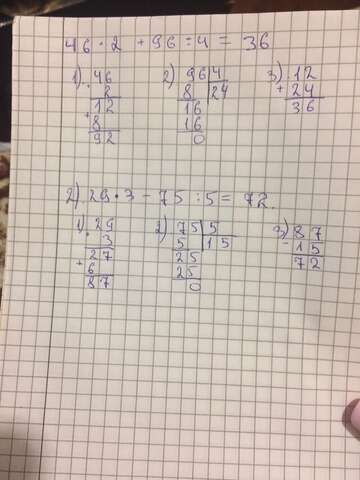 46 · 2 + 96 : 4 = 36
1) 46 2) 96 4 3) 12
· 2 8 24 + 24
12 16 36
+ 8 16
92 0
2) 29 · 3 - 75 : 5 = 72.
1) 29 2) 75 5 3) 87
· 3 5 15 - 15
27 25 72
+ 6 25
87 0